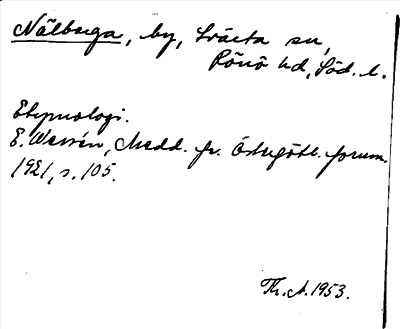 Nälberga, by, Svärta sn,
Rönö hd, Söd. l.
Etymologi.
E. Wessén, Medd. fr. Östergötl. fornm.
1921, s. 105.
Th. A. 1953.